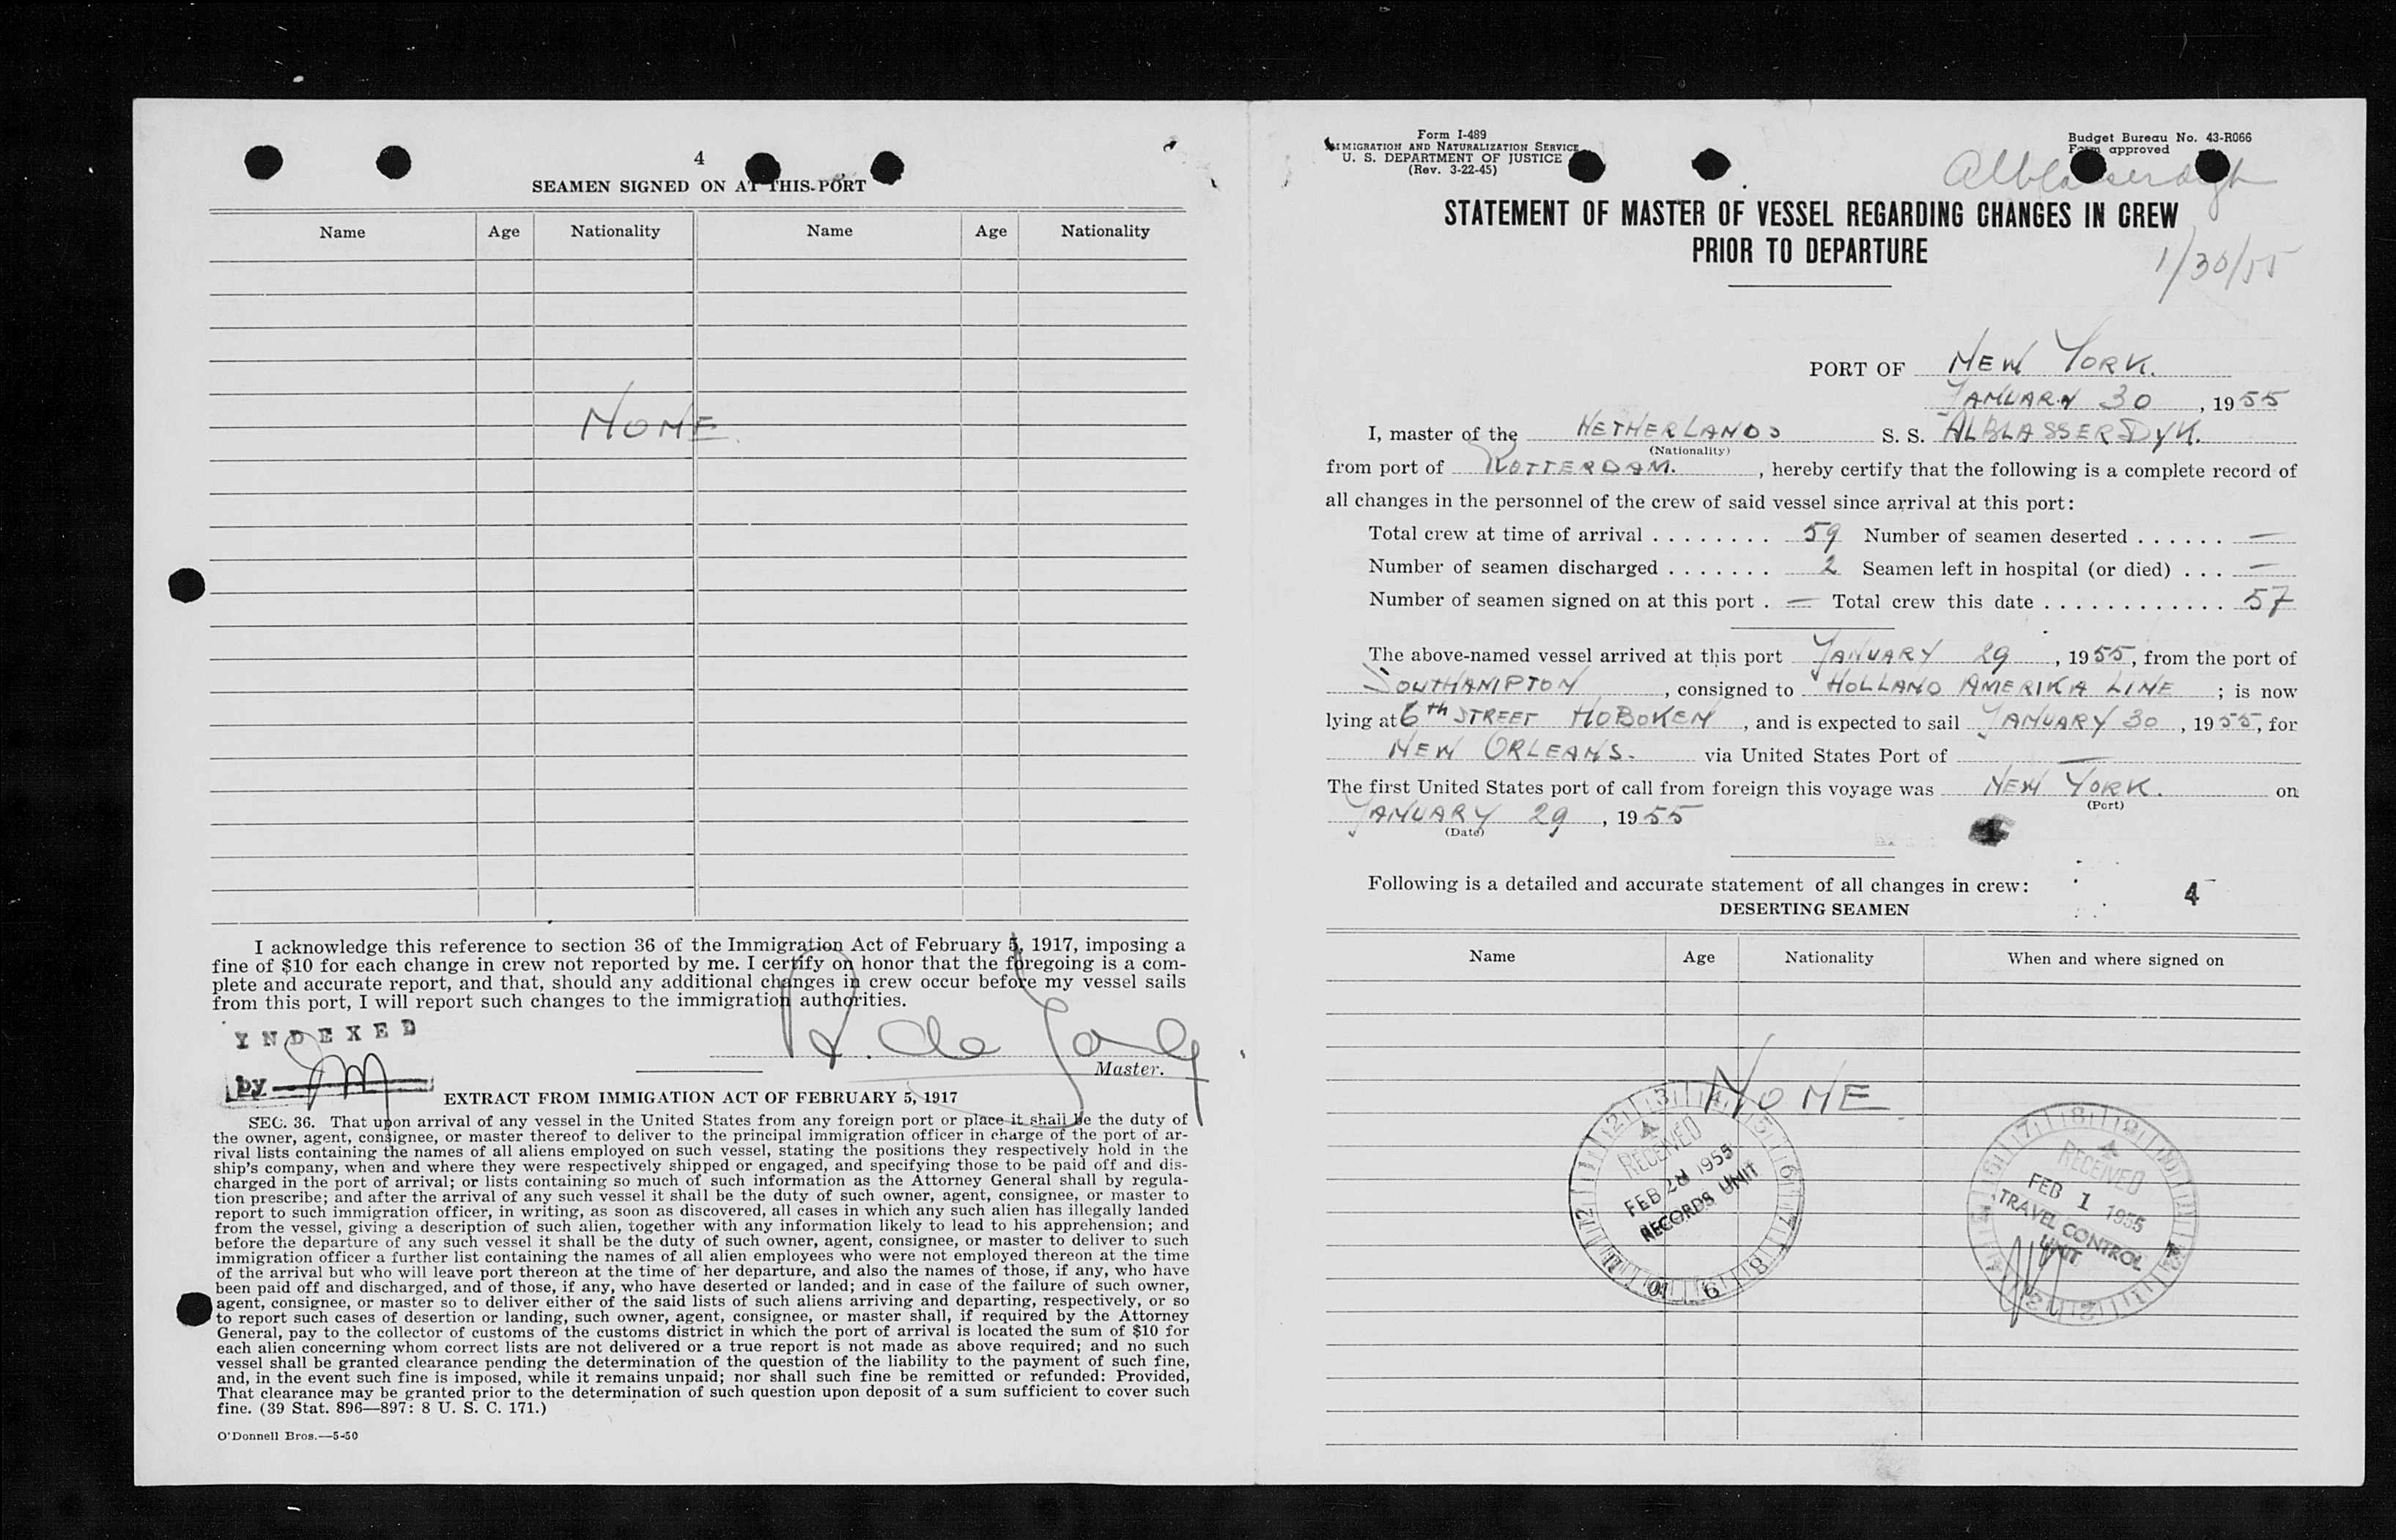 4
SEAMEN SIGNED ON AT THIS PORT
Name Age Nationality Name Age Nationality
NONE
I acknowledge this reference to section 36 of the Immigration Act of February 5, 1917, imposing a
fine of $10 for each change in crew not reported by me. I certify on honor that the foregoing is a com-
plete and accurate report, and that, should any additional changes in crew occur before my vessel sails
from this port, I will report such changes to the immigration authorities.
INDEXED
by
R. de Jong
Master.
EXTRACT FROM IMMIGATION ACT OF FEBRUARY 5, 1917
SEC. 36. That upon arrival of any vessel in the United States from any foreign port or place it shall be the duty of
the owner, agent, consignee, or master thereof to deliver to the principal immigration officer in charge of the port of ar-
rival lists containing the names of all aliens employed on such vessel, stating the positions they respectively hold in the
ship's company, when and where they were respectively shipped or engaged, and specifying those to be paid off and dis-
charged in the port of arrival; or lists containing so much of such information as the Attorney General shall by regula-
tion prescribe; and after the arrival of any such vessel it shall be the duty of such owner, agent, consignee, or master to
report to such immigration officer, in writing, as soon as discovered, all cases in which any such alien has illegally landed
from the vessel, giving a description of such alien, together with any information likely to lead to his apprehension; and
before the departure of any such vessel it shall be the duty of such owner, agent, consignee, or master to deliver to such
immigration officer a further list containing the names of all alien employees who were not employed thereon at the time
of the arrival but who will leave port thereon at the time of her departure, and also the names of those, if any, who have
been paid off and discharged, and of those, if any, who have deserted or landed; and in case of the failure of such owner,
agent, consignee, or master so to deliver either of the said lists of such aliens arriving and departing, respectively, or so
to report such cases of desertion or landing, such owner, agent, consignee, or master shall, if required by the Attorney
General, pay to the collector of customs of the customs district in which the port of arrival is located the sum of $10 for
each alien concerning whom correct lists are not delivered or a true report is not made as above required; and no such
vessel shall be granted clearance pending the determination of the question of the liability to the payment of such fine,
and, in the event such fine is imposed, while it remains unpaid; nor shall such fine be remitted or refunded: Provided,
That clearance may be granted prior to the determination of such question upon deposit of a sum sufficient to cover such
fine. (39 Stat. 896—897: 8 U. S. C. 171.)
O'Donnell Bros.—5-50
Form I-489
IMMIGRATION AND NATURALIZATION SERVICE
U. S. DEPARTMENT OF JUSTICE
(Rev. 3-22-45)
Budget Bureau No. 43-R066
Form approved
Alblasserdyk
STATEMENT OF MASTER OF VESSEL REGARDING CHANGES IN CREW
PRIOR TO DEPARTURE
1/30/55
PORT OF NEW YORK.
JANUARY 30, 1955
I, master of the NETHERLANDS S. S. ALBLASSERDYK.
(Nationality)
from port of ROTTERDAM., hereby certify that the following is a complete record of
all changes in the personnel of the crew of said vessel since arrival at this port:
Total crew at time of arrival . . . . . . . . 59 Number of seamen deserted . . . . . . —
Number of seamen discharged . . . . . . . 2 Seamen left in hospital (or died) . . . —
Number of seamen signed on at this port . — Total crew this date . . . . . . . . . . . . 57
The above-named vessel arrived at this port JANUARY 29, 1955, from the port of
SOUTHAMPTON, consigned to HOLLAND AMERIKA LINE; is now
lying at 6th STREET HOBOKEN, and is expected to sail JANUARY 30, 1955, for
NEW ORLEANS. via United States Port of —
The first United States port of call from foreign this voyage was NEW YORK. on
(Port)
JANUARY 29, 1955
(Date)
Following is a detailed and accurate statement of all changes in crew:
4
DESERTING SEAMEN
Name Age Nationality When and where signed on
NONE
RECEIVED
FEB 28 1955
RECORDS UNIT
RECEIVED
FEB 1 1955
TRAVEL CONTROL
UNIT